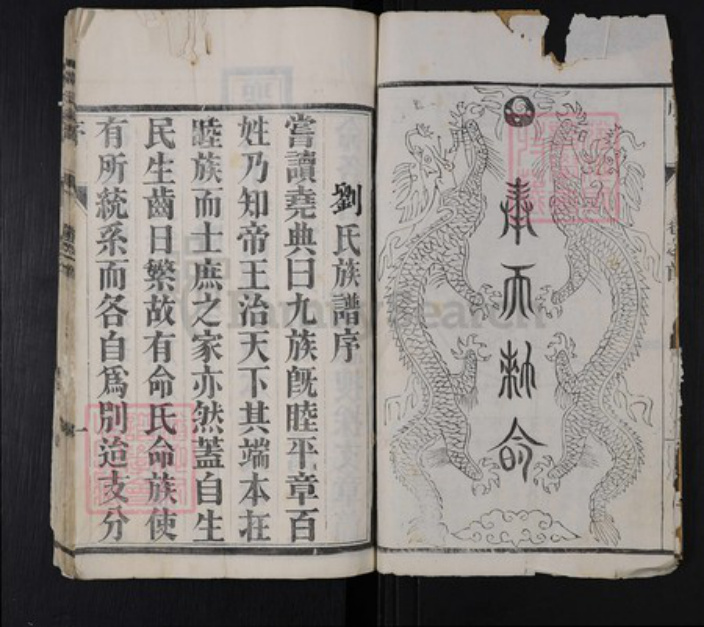 奉天勅命
劉氏族譜序
嘗讀堯典曰九族旣睦平章百
姓乃知帝王治天下其端本在
睦族而士庶之家亦然蓋自生
民生齒日繁故有命氏命族使
有所統系而各自爲別迨支分
FamilySearch